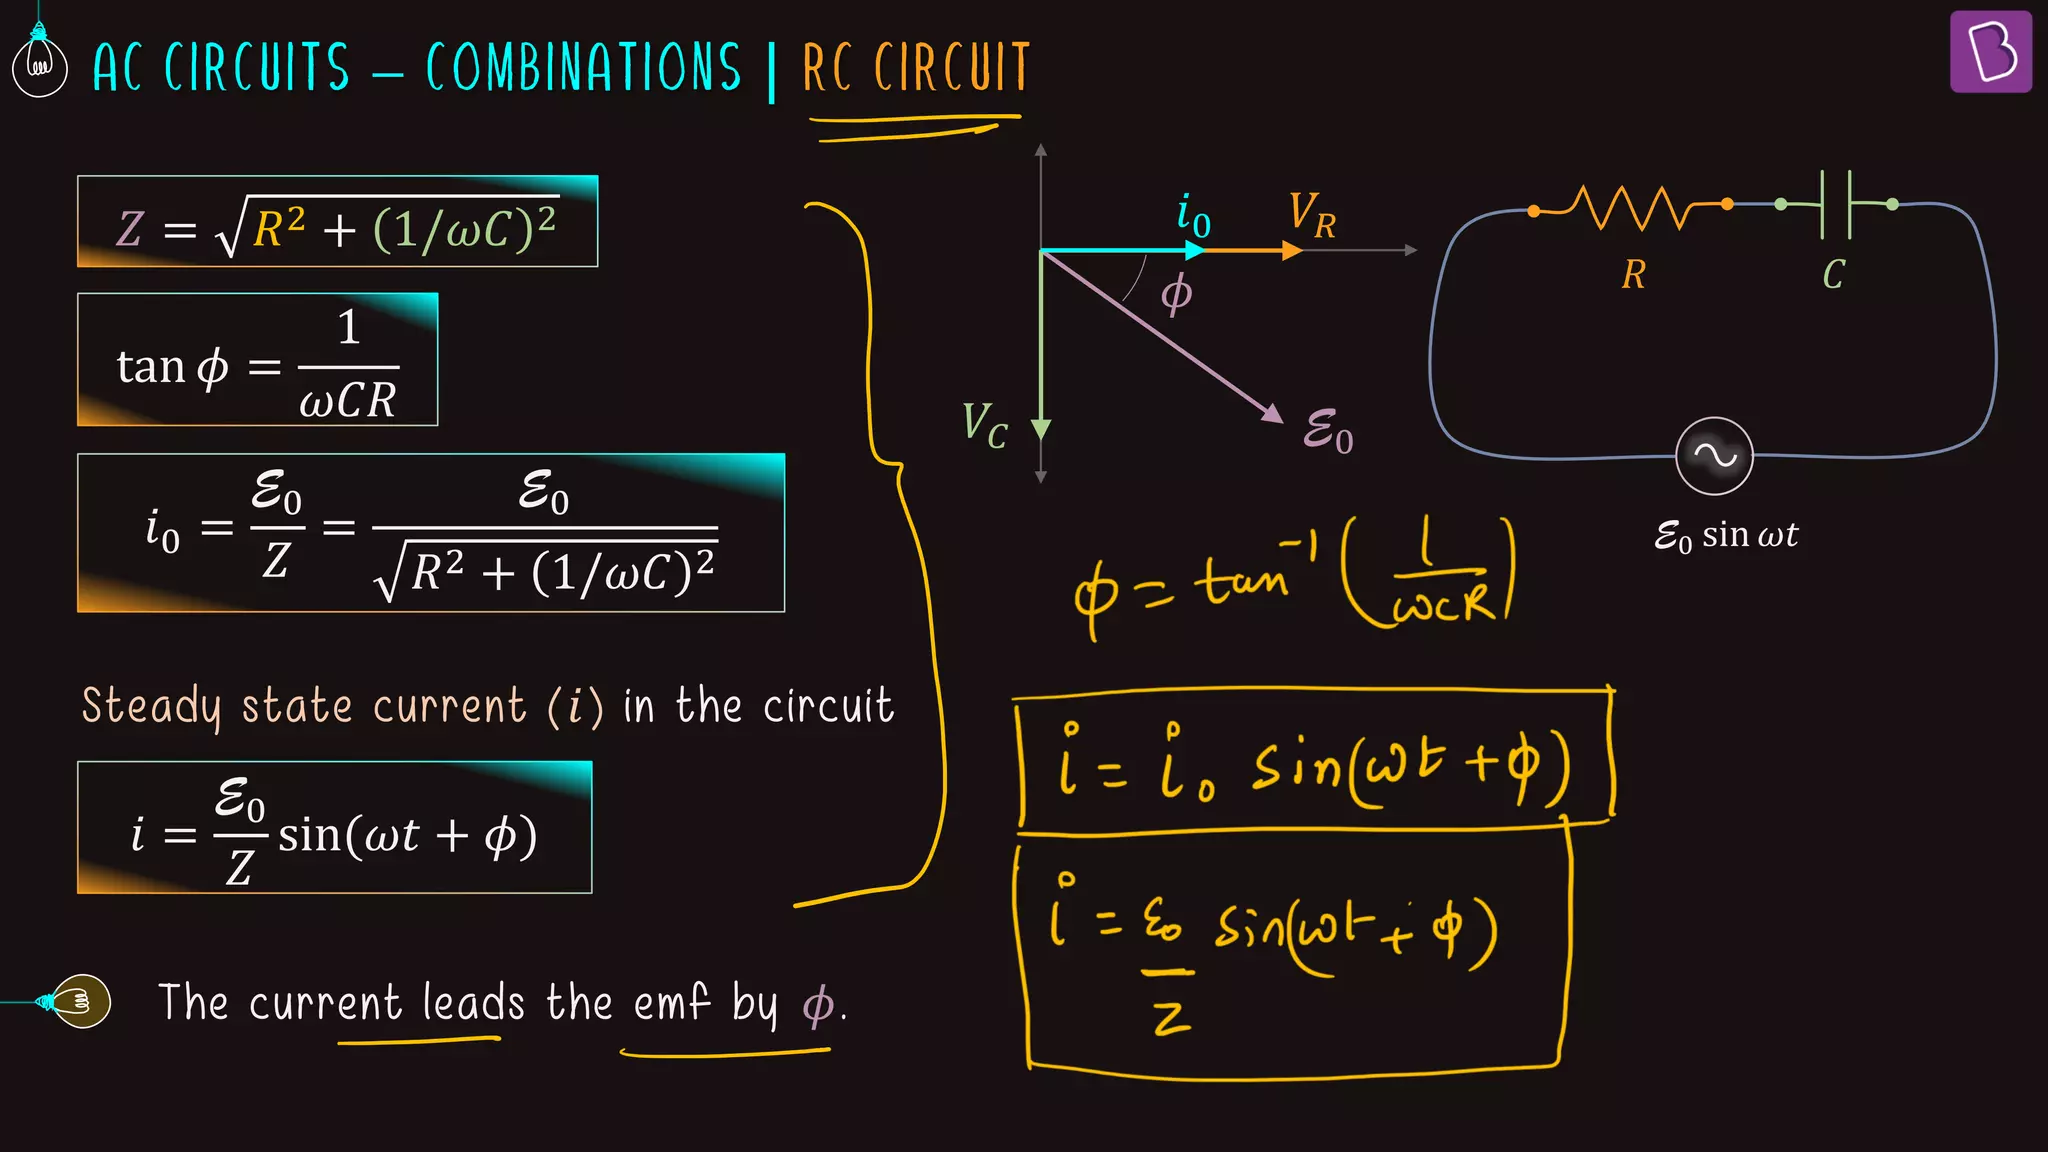 AC CIRCUITS – COMBINATIONS | RC CIRCUIT
Z = √(R² + (1/ωC)²)
tan ϕ = 1/ωCR
i₀ = ℰ₀/Z = ℰ₀/√(R² + (1/ωC)²)
Steady state current (i) in the circuit
i = ℰ₀/Z sin(ωt + ϕ)
The current leads the emf by ϕ.
i₀
V_R
ϕ
V_C
ℰ₀
R
C
ℰ₀ sin ωt
ϕ = tan⁻¹(1/ωCR)
i = i₀ sin(ωt + ϕ)
i = ε₀/Z sin(ωt + ϕ)
B